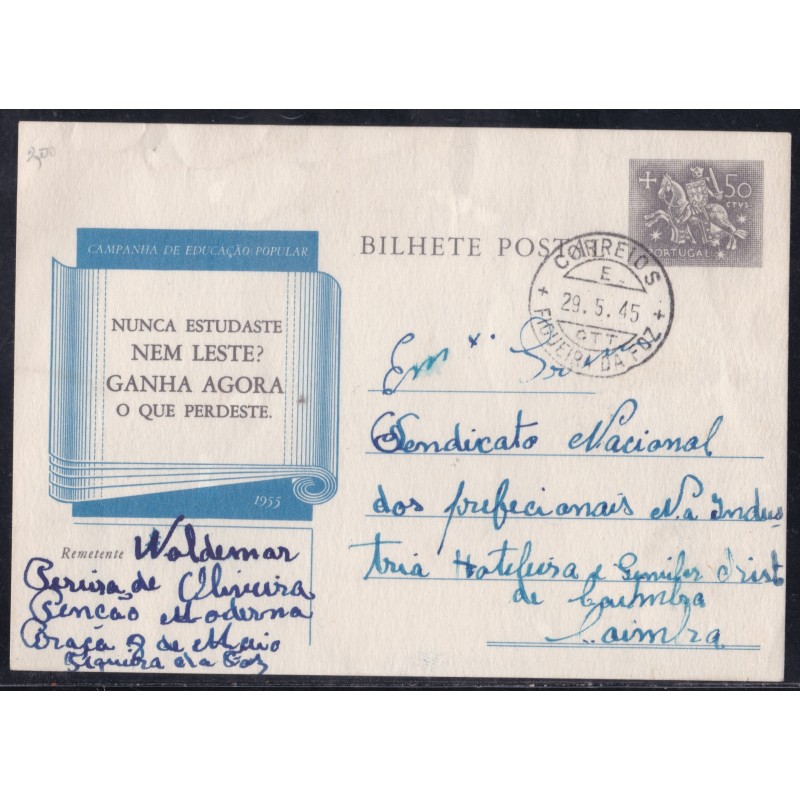 2,50
50
CTVS.
PORTUGAL
CAMPANHA DE EDUCAÇÃO POPULAR
BILHETE POSTAL
CORREIOS
E
29.5.45
CTT
FIGUEIRA DA FOZ
NUNCA ESTUDASTE
NEM LESTE?
GANHA AGORA
O QUE PERDESTE.
1955
Em x.
Sendicato Nacional
dos prefecionais Na Indus
tria Hoteleira e Similer Dist
de Coimbra
Coimbra
Remetente Waldemar
Pereira de Oliveira
Penção Moderna
Praça 8 de Maio
Figueira da Foz